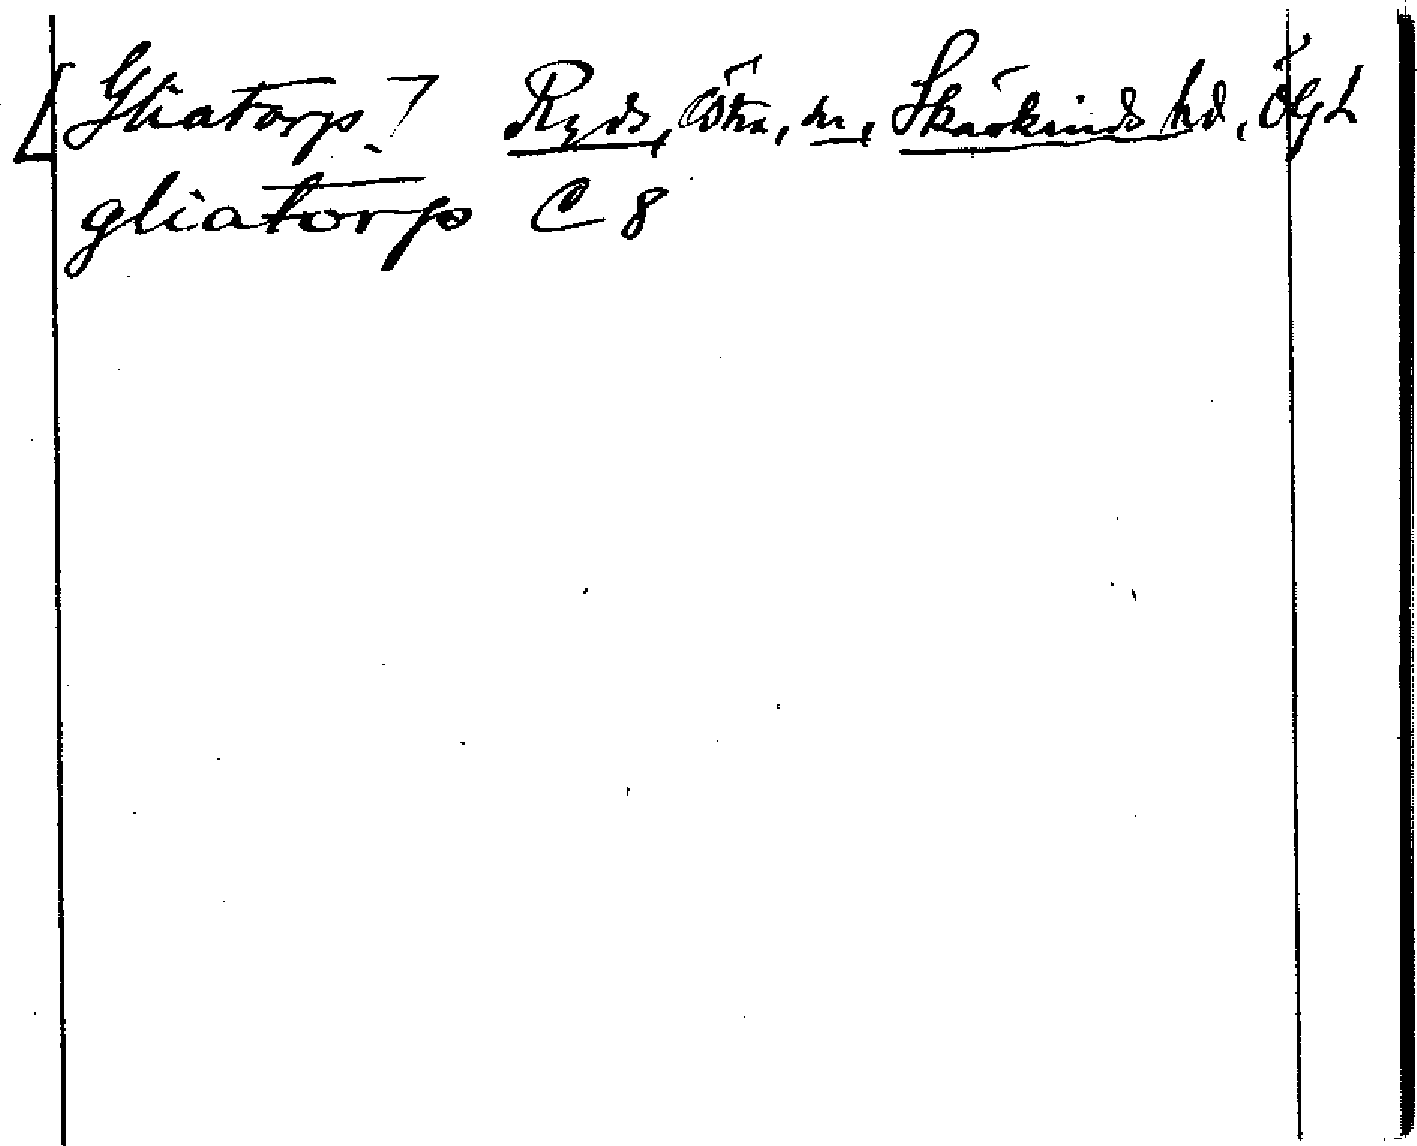 [Gliatorp] Ryds, Östra, sn, Skärkinds hd, Ögl
gliatorp C 8